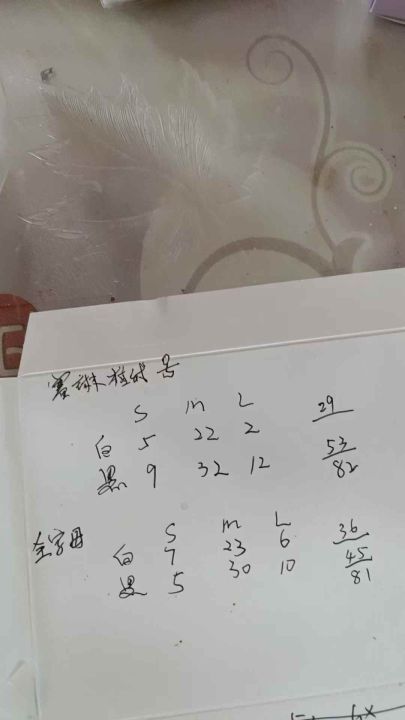 S M L 29
白 5 22 2 53
黑 9 32 12 82
全字母 S M L 36
白 7 23 6 45
黑 5 30 10 81